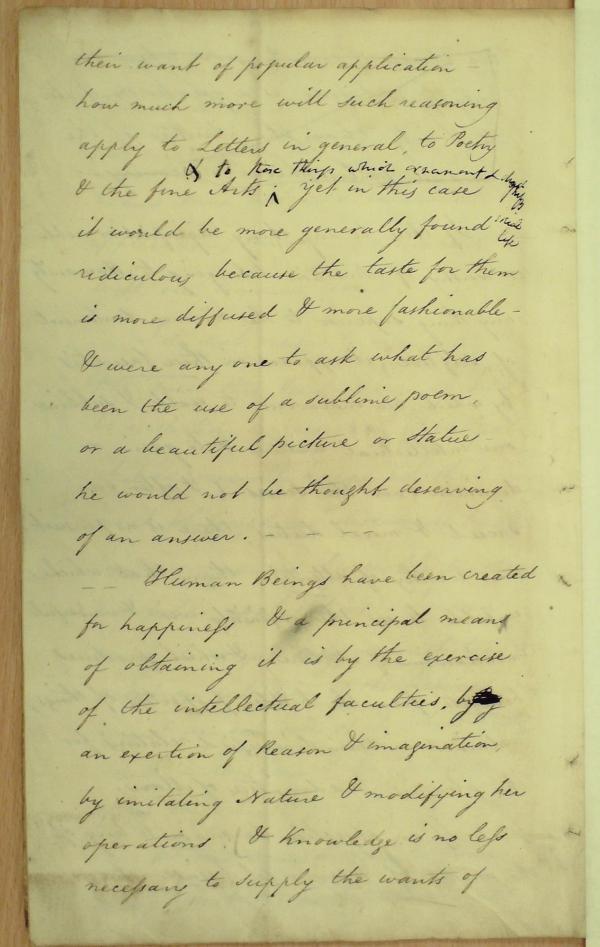 their want of popular application –
how much more will such reasoning
apply to Letters in general, to Poetry
& to those things which ornament &
& the fine Arts; yet in this case
it would be more generally found
social life
ridiculous because the taste for them
is more diffused & more fashionable –
& were any one to ask what has
been the use of a sublime poem,
or a beautiful picture or Statue
he would not be thought deserving
of an answer. –
–– Human Beings have been created
for happiness & a principal means
of obtaining it is by the exercise
of the intellectual faculties, by
an exertion of Reason & imagination,
by imitating Nature & modifying her
operations. & Knowledge is no less
necessary to supply the wants of